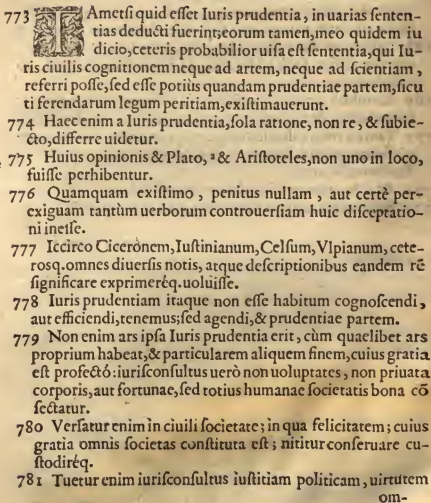 773 TAmetsi quid esset Iuris prudentia, in uarias senten-
tias deducti fuerint; eorum tamen, meo quidem iu
dicio, ceteris probabilior uisa est sententia, qui Iu-
ris ciuilis cognitionem neque ad artem, neque ad scientiam,
referri posse, sed esse potiùs quandam prudentiae partem, sicu
ti ferendarum legum peritiam, existimauerunt.
774 Haec enim a Iuris prudentia, sola ratione, non re, & subie-
cto, differre uidetur.
775 Huius opinionis & Plato, ª & Aristoteles, non uno in loco,
fuisse perhibentur.
776 Quamquam existimo, penitus nullam, aut certè per-
exiguam tantùm uerborum controuersiam huic disceptatio-
ni inesse.
777 Iccirco Ciceronem, Iustinianum, Celsum, Vlpianum, cete-
rosq. omnes diuersis notis, atque descriptionibus eandem rē
significare exprimeréq. uoluisse.
778 Iuris prudentiam itaque non esse habitum cognoscendi,
aut efficiendi, tenemus; sed agendi, & prudentiae partem.
779 Non enim ars ipsa Iuris prudentia erit, cùm quaelibet ars
proprium habeat, & particularem aliquem finem, cuius gratia
est profectò: iurisconsultus uerò non uoluptates, non priuata
corporis, aut fortunae, sed totius humanae societatis bona cō
sectatur.
780 Versatur enim in ciuili societate; in qua felicitatem; cuius
gratia omnis societas constituta est; nititur conseruare cu-
stodiréq.
781 Tuetur enim iurisconsultus iustitiam politicam, uirtutem
om-